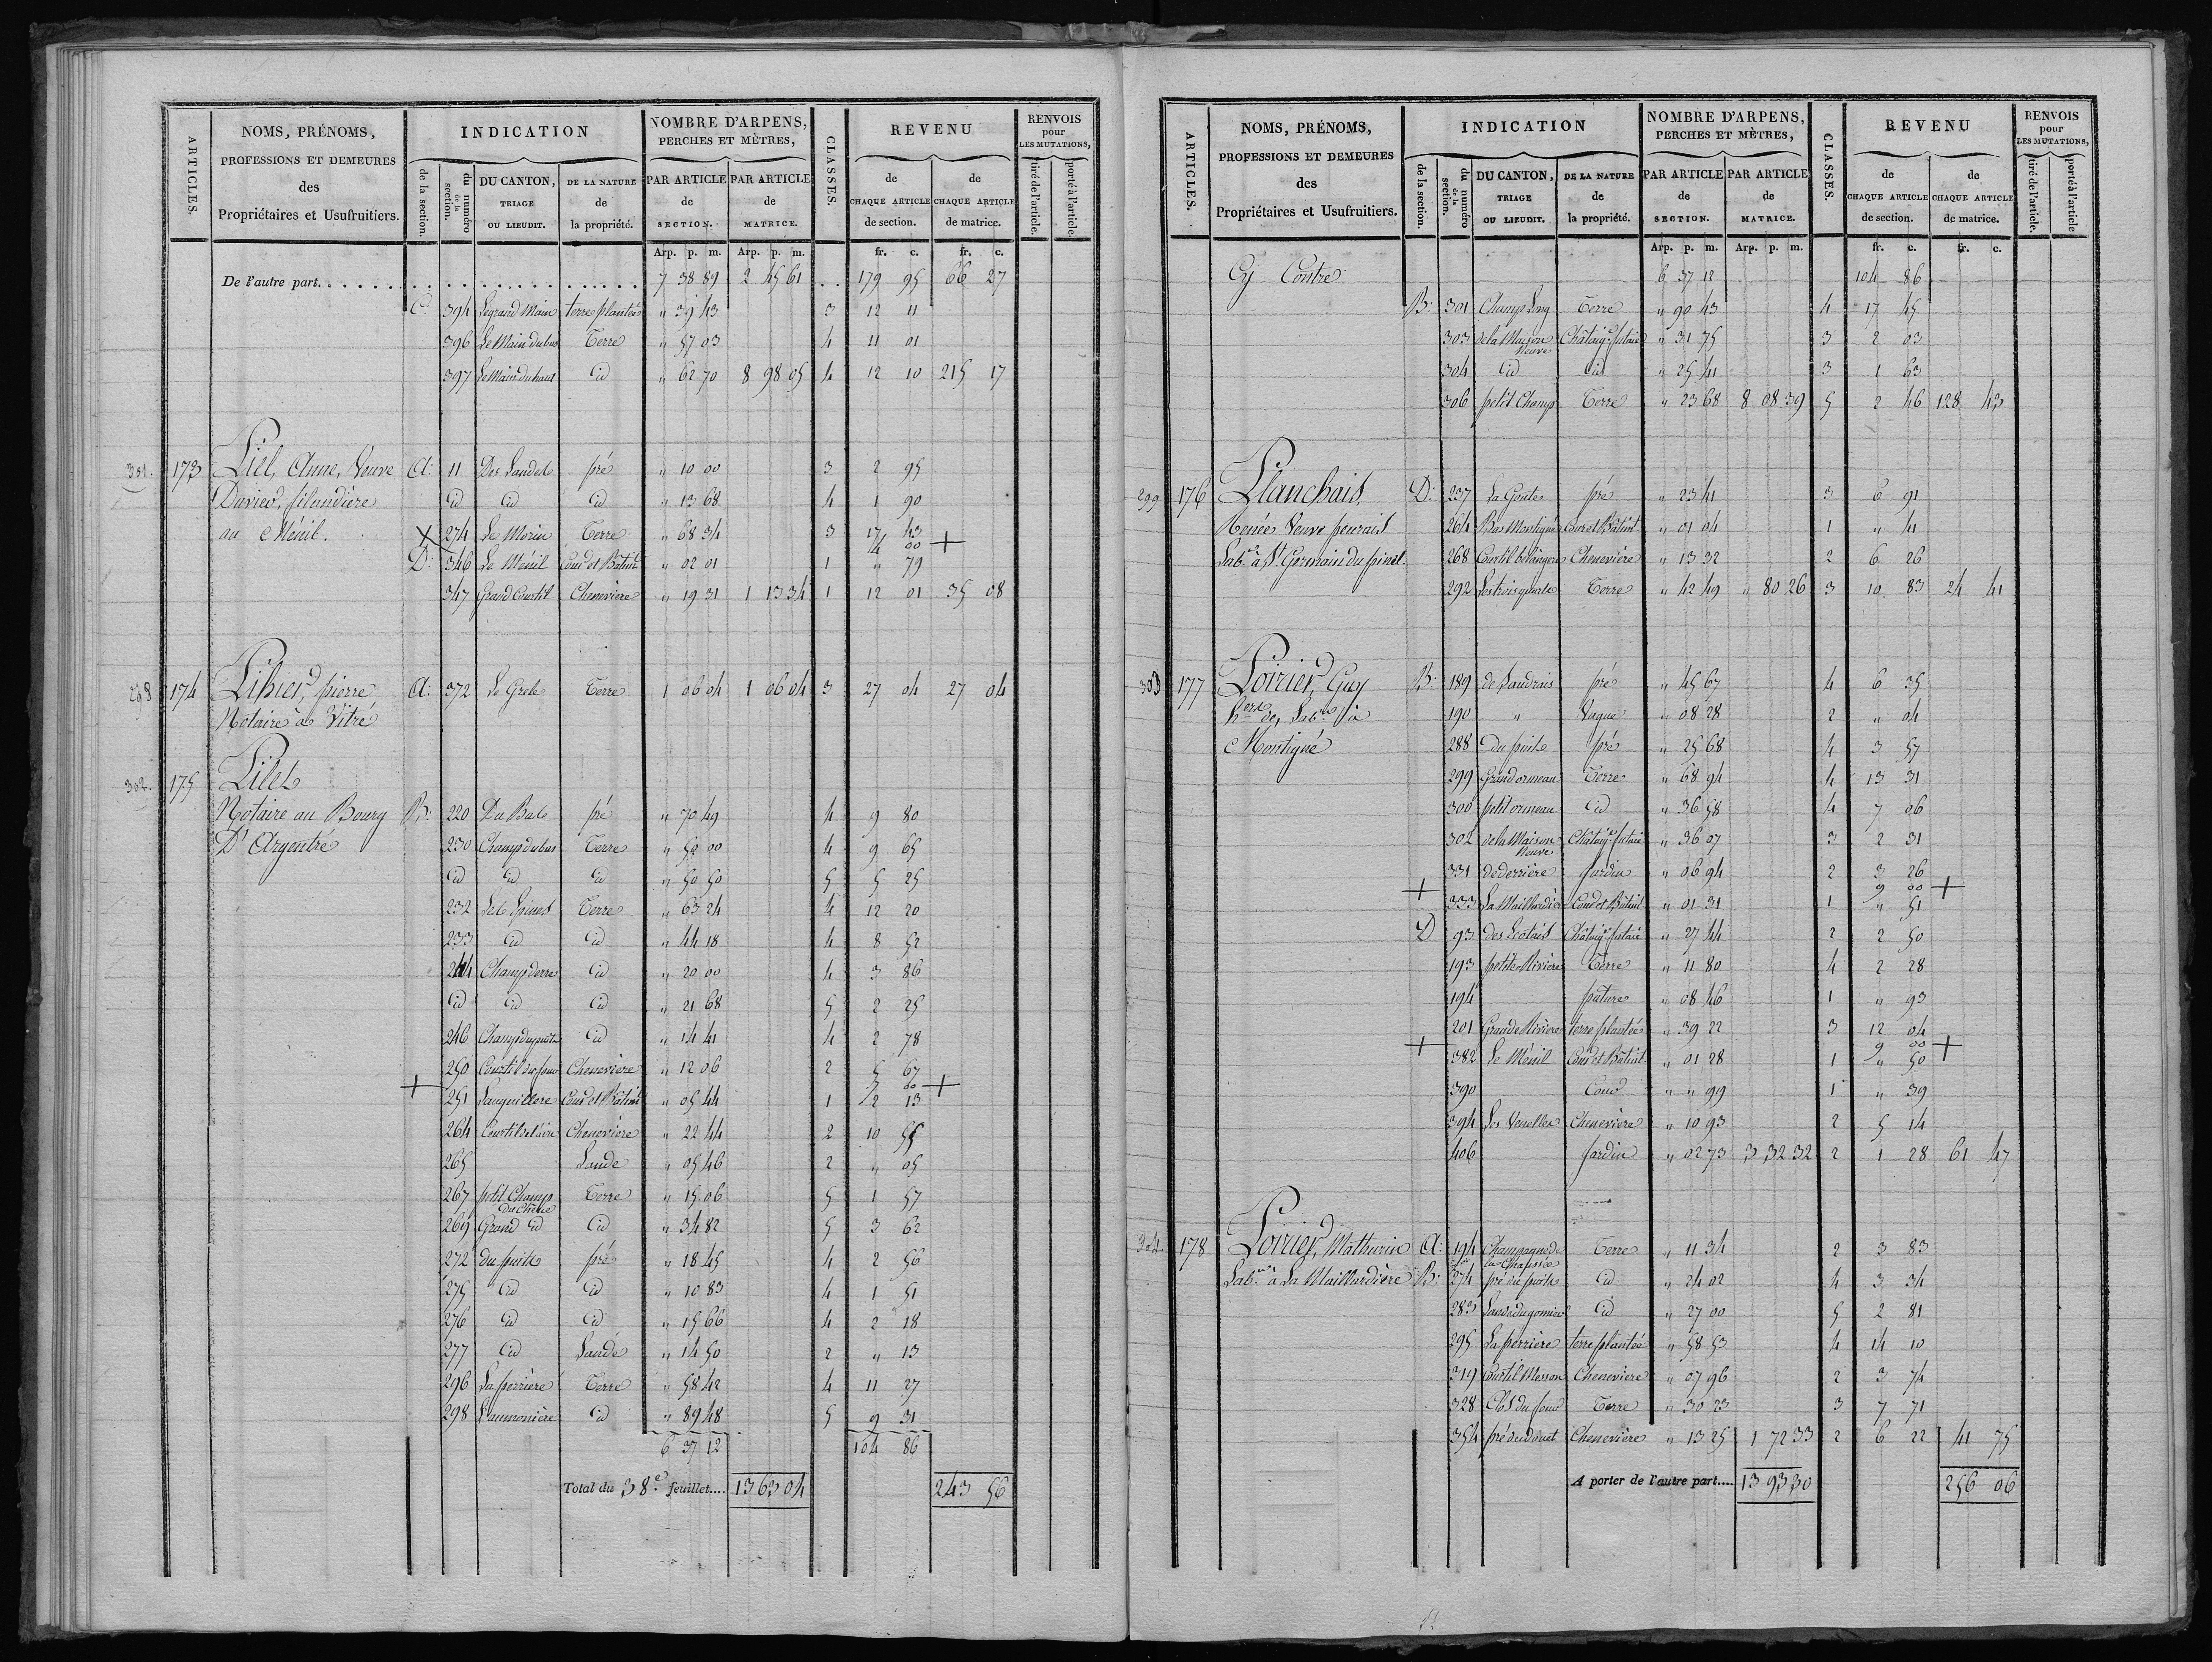 ARTICLES.
NOMS, PRÉNOMS,
PROFESSIONS ET DEMEURES
des
Propriétaires et Usufruitiers.
INDICATION
de la section.
du numéro de la section.
DU CANTON, TRIAGE OU LIEUDIT.
DE LA NATURE de la propriété.
NOMBRE D'ARPENS,
PERCHES ET MÈTRES,
PAR ARTICLE de SECTION.
PAR ARTICLE de MATRICE.
CLASSES.
REVENU
de CHAQUE ARTICLE de section.
de CHAQUE ARTICLE de matrice.
RENVOIS pour LES MUTATIONS,
tiré de l'article.
porté à l'article
Arp. p. m. Arp. p. m. fr. c. fr. c.
De l'autre part. 7 38 89 2 45 61 179 95 66 27
C. 394 Legrand Main terre plantée " 39 43 3 12 11
396 Le Main du bas Terre " 57 03 4 11 01
397 Le Main du haut Id " 62 70 8 98 05 4 12 10 215 17
301. 173 Anne, Veuve A. 11 Des Landes pré " 10 00 3 2 95
filandière Id Id Id " 13 68 4 1 90
au Ménil. X 274 Le Morin Terre " 68 34 3 17 43
4 00 +
D. 346 Le Ménil Cour et Bâtimt " 02 01 1 " 79
347 Grand Courtil Chenevière " 19 31 1 13 34 1 12 01 35 08
298 174 pierre A. 372 Terre 1 06 04 1 06 04 3 27 04 27 04
Notaire à Vitré
302. 175
Notaire au Bourg B. 220 Du Bas pré " 70 49 4 9 80
D'Argentré 230 Champ du bas Terre " 50 00 4 9 65
Id Id Id " 50 50 5 5 25
232 Les Epines Terre " 63 24 4 12 20
233 Id Id " 44 18 4 8 52
244 Champ derre Id " 20 00 4 3 86
Id Id Id " 21 68 5 2 25
246 Champ du puits Id " 14 41 4 2 78
250 Courtil du four Chenevière " 12 06 2 5 67
7 00 +
+ 251 Languillere Cour et Bâtimt " 05 44 1 2 13
264 Courtil de l'aire Chenevière " 22 44 2 10 55
265 Lande " 05 46 2 " 05
267 petit Champ Du Chêne Terre " 15 06 5 1 57
269 Grand Id Id " 34 82 5 3 62
272 du puits pré " 18 45 4 2 56
275 Id Id " 10 83 4 1 51
276 Id Id " 15 66 4 2 18
277 Id Lande " 14 50 2 " 13
296 La perrière Terre " 58 42 4 11 27
298 L'aumonière Id " 89 48 5 9 31
6 37 12 104 86
Total du 38e feuillet.... 13 63 04 243 56
ARTICLES.
NOMS, PRÉNOMS,
PROFESSIONS ET DEMEURES
des
Propriétaires et Usufruitiers.
INDICATION
de la section.
du numéro de la section.
DU CANTON, TRIAGE OU LIEUDIT.
DE LA NATURE de la propriété.
NOMBRE D'ARPENS,
PERCHES ET MÈTRES,
PAR ARTICLE de SECTION.
PAR ARTICLE de MATRICE.
CLASSES.
REVENU
de CHAQUE ARTICLE de section.
de CHAQUE ARTICLE de matrice.
RENVOIS pour LES MUTATIONS,
tiré de l'article.
porté à l'article
Arp. p. m. Arp. p. m. fr. c. fr. c.
Cy Contre 6 37 12 104 86
B. 301 Champ Long Terre " 90 43 4 17 45
303 de la Maison Neuve Châtaig. futaie " 31 75 3 2 03
304 Id Id " 25 41 3 1 63
306 petit Champ Terre " 23 68 8 08 39 5 2 46 128 43
299 176 Planchais D. 237 La Goute pré " 23 41 3 6 91
Renée Veuve peurais 264 Bas Montigné Cour et Bâtimt " 01 04 1 " 41
Labre à St Germain du pinel. 268 Courtil Chenevière " 13 32 2 6 26
292 Les trois quarts Terre " 42 49 " 80 26 3 10 83 24 41
303 177 Poirier, Guy B. 189 de Landrais pré " 45 67 4 6 35
hers de, Labre à 190 " Vague " 08 28 2 " 04
Montigné 288 Du puits pré " 25 68 4 3 57
299 Grand ormeau Terre " 68 94 4 13 31
300 petit ormeau Id " 36 58 4 7 06
302 de la Maison Neuve Châtaig. futaie " 36 07 3 2 31
331 de derrière Jardin " 06 94 2 3 26
9 00 +
+ 333 La Maillardière Cour et Bâtimt " 01 31 1 " 51
D 93 des Châtaig. futaie " 27 44 2 2 50
193 petite Rivière Terre " 11 80 4 2 28
194 pature " 08 46 1 " 93
201 Grande Rivière terre plantée " 39 22 3 12 04
9 00 +
+ 382 Le Ménil Cour et Bâtimt " 01 28 1 " 50
390 Cour " " 99 1 " 39
394 Les Venelles Chenevière " 10 93 2 5 14
406 Jardin " 02 73 3 32 32 2 1 28 61 47
304. 178 Poirier, Mathurin A. 194 Champagne de la Chaussée Terre " 11 34 2 3 83
Labre à La Maillardière B. 274 pré du puits Id " 24 02 4 3 34
283 Id " 27 00 5 2 81
295 La perrière terre plantée " 58 53 4 14 10
319 Courtil Messon Chenevière " 07 96 2 3 74
328 Clos du four Terre " 30 23 3 7 71
354 Chenevière " 13 25 1 72 33 2 6 22 41 75
A porter de l'autre part.... 13 93 30 256 06